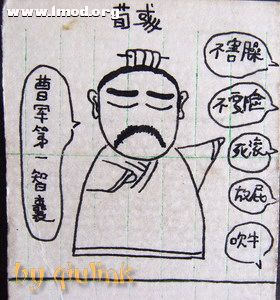 www.lmod.org
荀彧
曹军第一智囊
不害臊
不要脸
死滚
放屁
吹牛
by qiulink